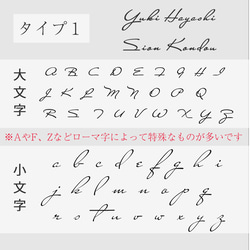 タイプ1
Yuki Hayashi
Sion Kondou
大文字
A B C D E F G H I
J K L M N O P Q
R S T U V W X Y Z
※AやF、Zなどローマ字によって特殊なものが多いです
小文字
a b c d e f g h i
j k l m n o p q
r s t u v w x y z